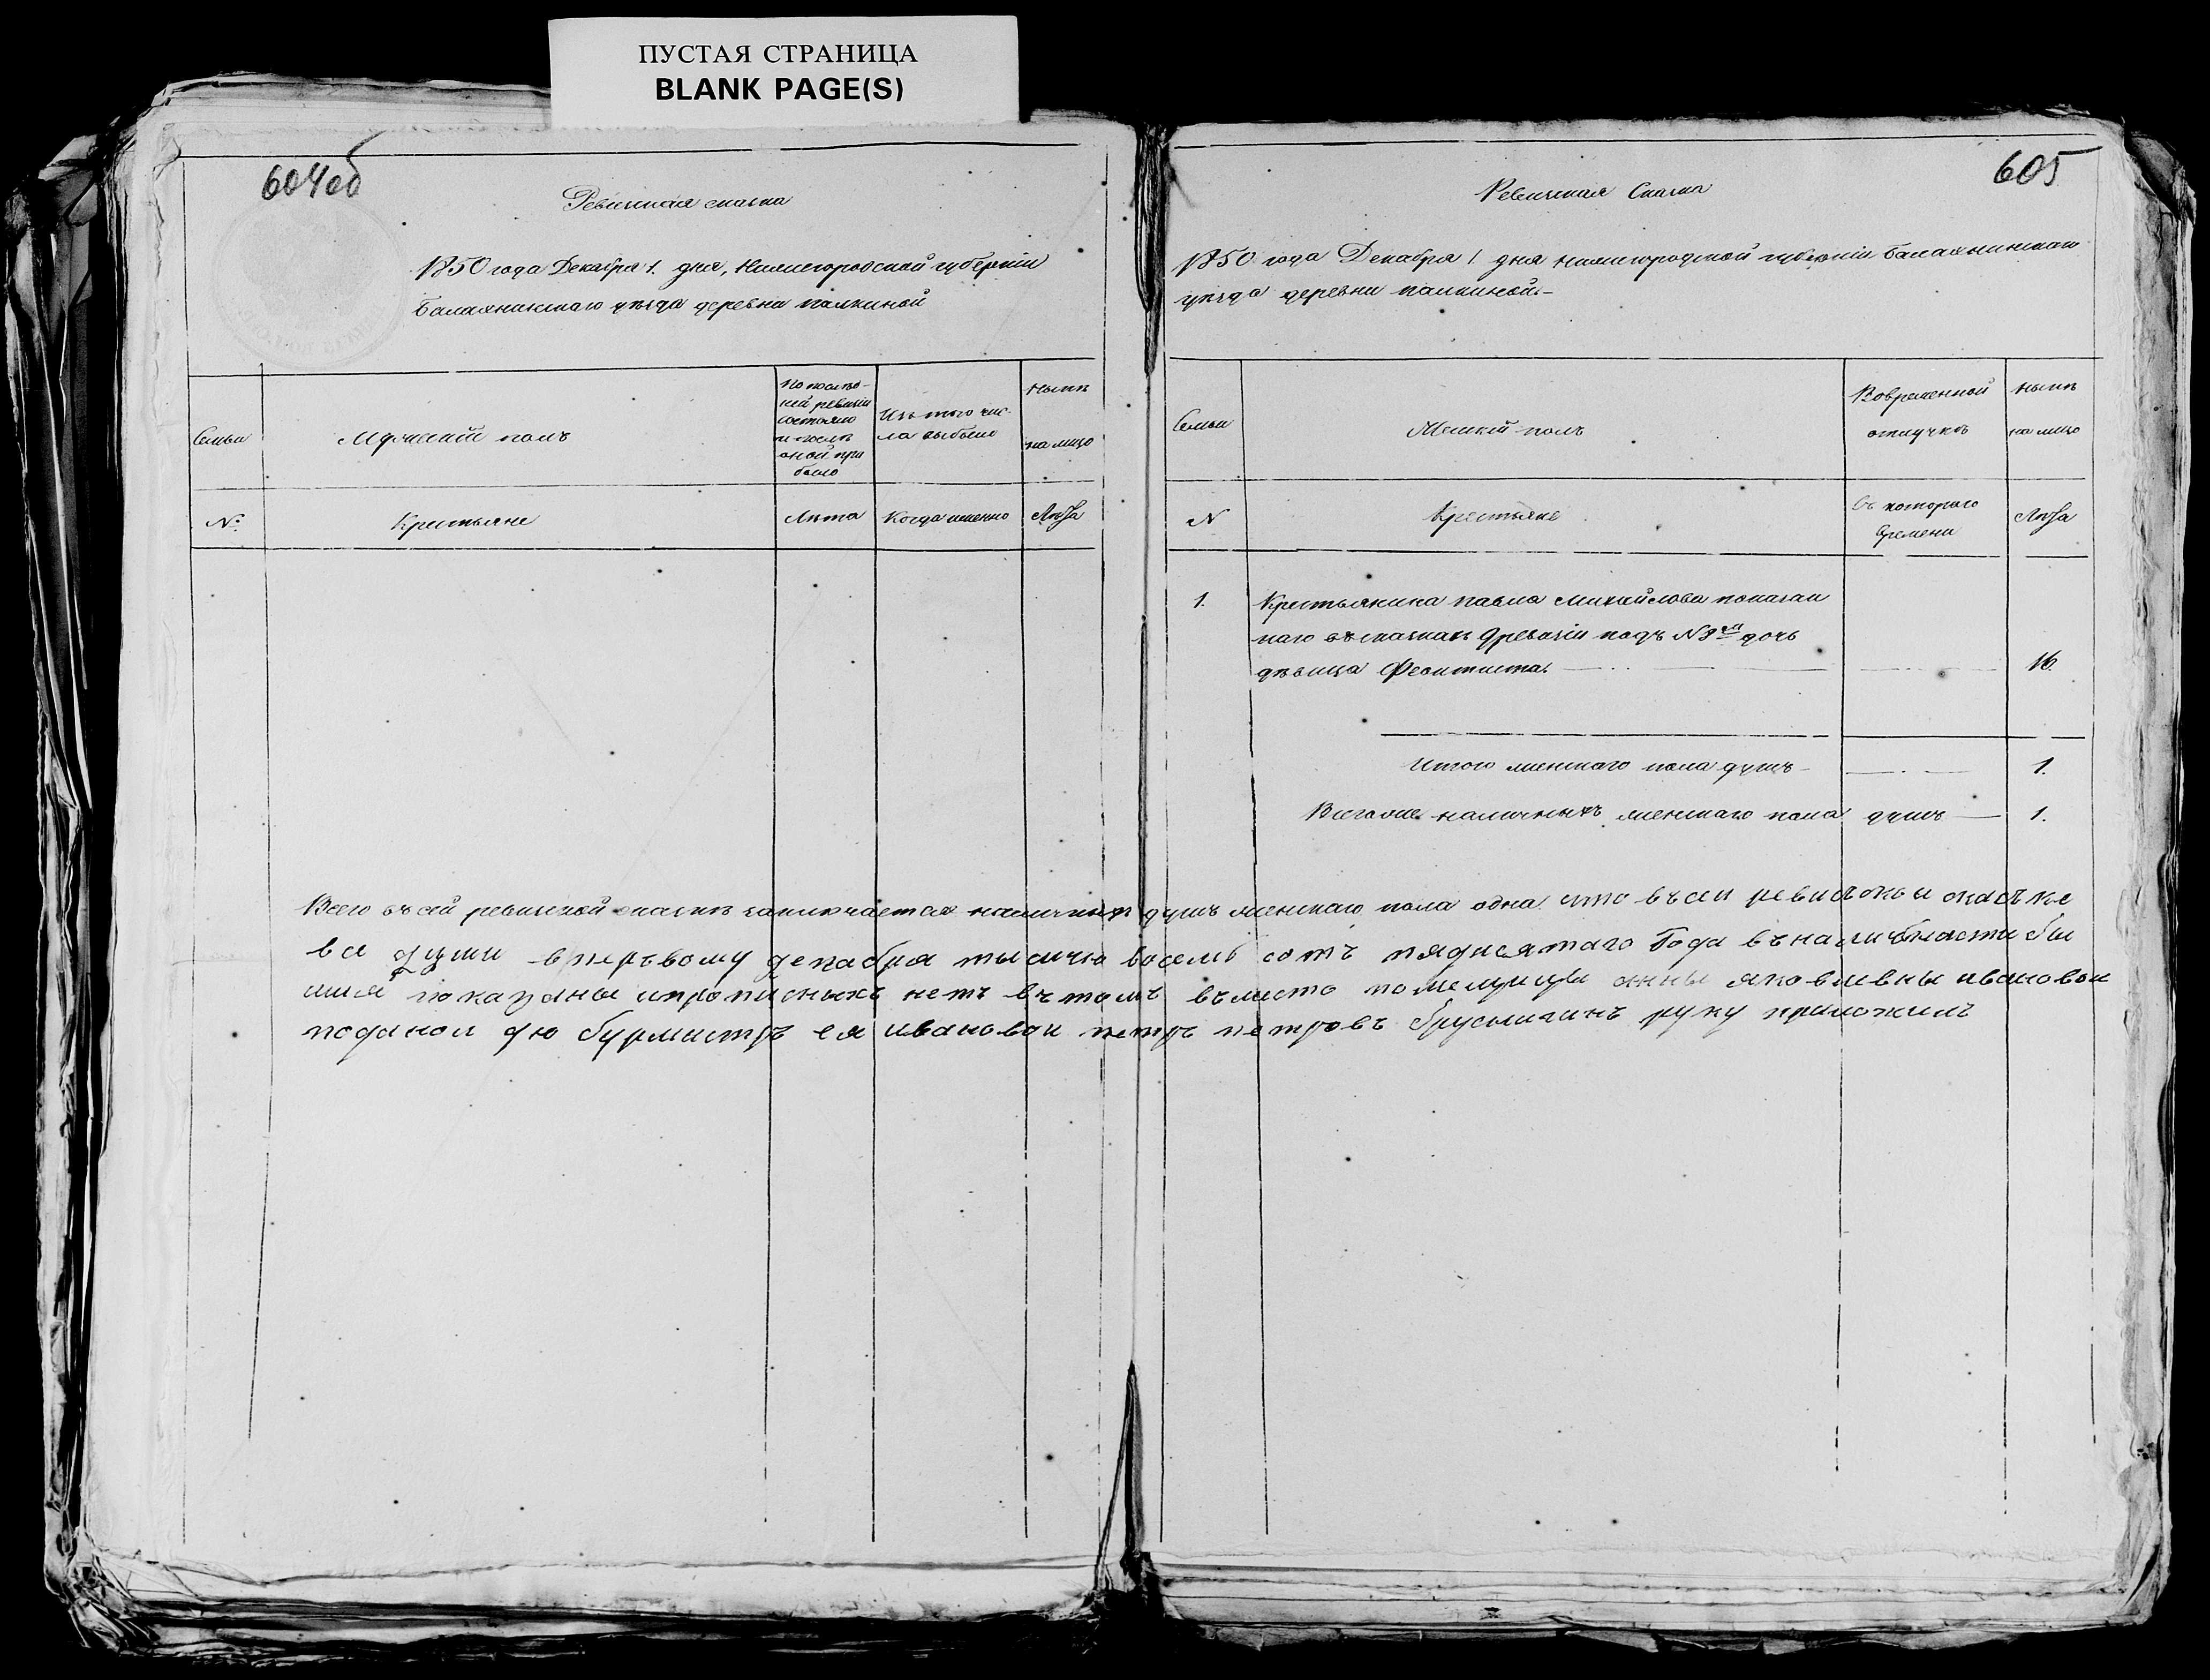 ПУСТАЯ СТРАНИЦА
BLANK PAGE(S)
604об
Ревизская сказка
1850 года Декабря 1. дня, Нижегородской губерніи
Балахнинскаго уѣзда деревни палкиной
Семьи
Мужескій полъ
По послѣд-
ней ревизіи
состояло
и послѣ
оной при
было
Изъ того чис-
ла выбыло
Нынѣ
на лицо
№
Крестьяне
Лѣта
Когда именно
Лѣта
605
Ревизская Сказка
1850 года Декабря 1 дня нижегородской губерніи Балахнинскаго
уѣзда деревни палкиной.
Семьи
Женскій полъ
Во временной
отлучкѣ
Нынѣ
на лицо
N
Крестьяне
Съ котораго
времени
Лѣта
1.
Крестьянина павла михайлова показан
наго въ сказкахъ 8 ревизіи подъ N 3м дочь
дѣвица Феоктиста.
16.
Итого женскаго пола душъ
1.
Всего же наличныхъ женскаго пола душъ
1.
Всего въ сей ревизской сказкѣ заключается наличныхъ душъ женскаго пола одна что въ сеи ревиской скаске
все души к перъвому декабря тысяча восемь сотъ пядисятаго Года въ наличности бы
шия показаны и прописныхъ нетъ въ томъ въместо помещицы анны яковлевны ивановои
поданои ею бурмистръ ея ивановои петръ петровъ брусницинъ руку приложилъ